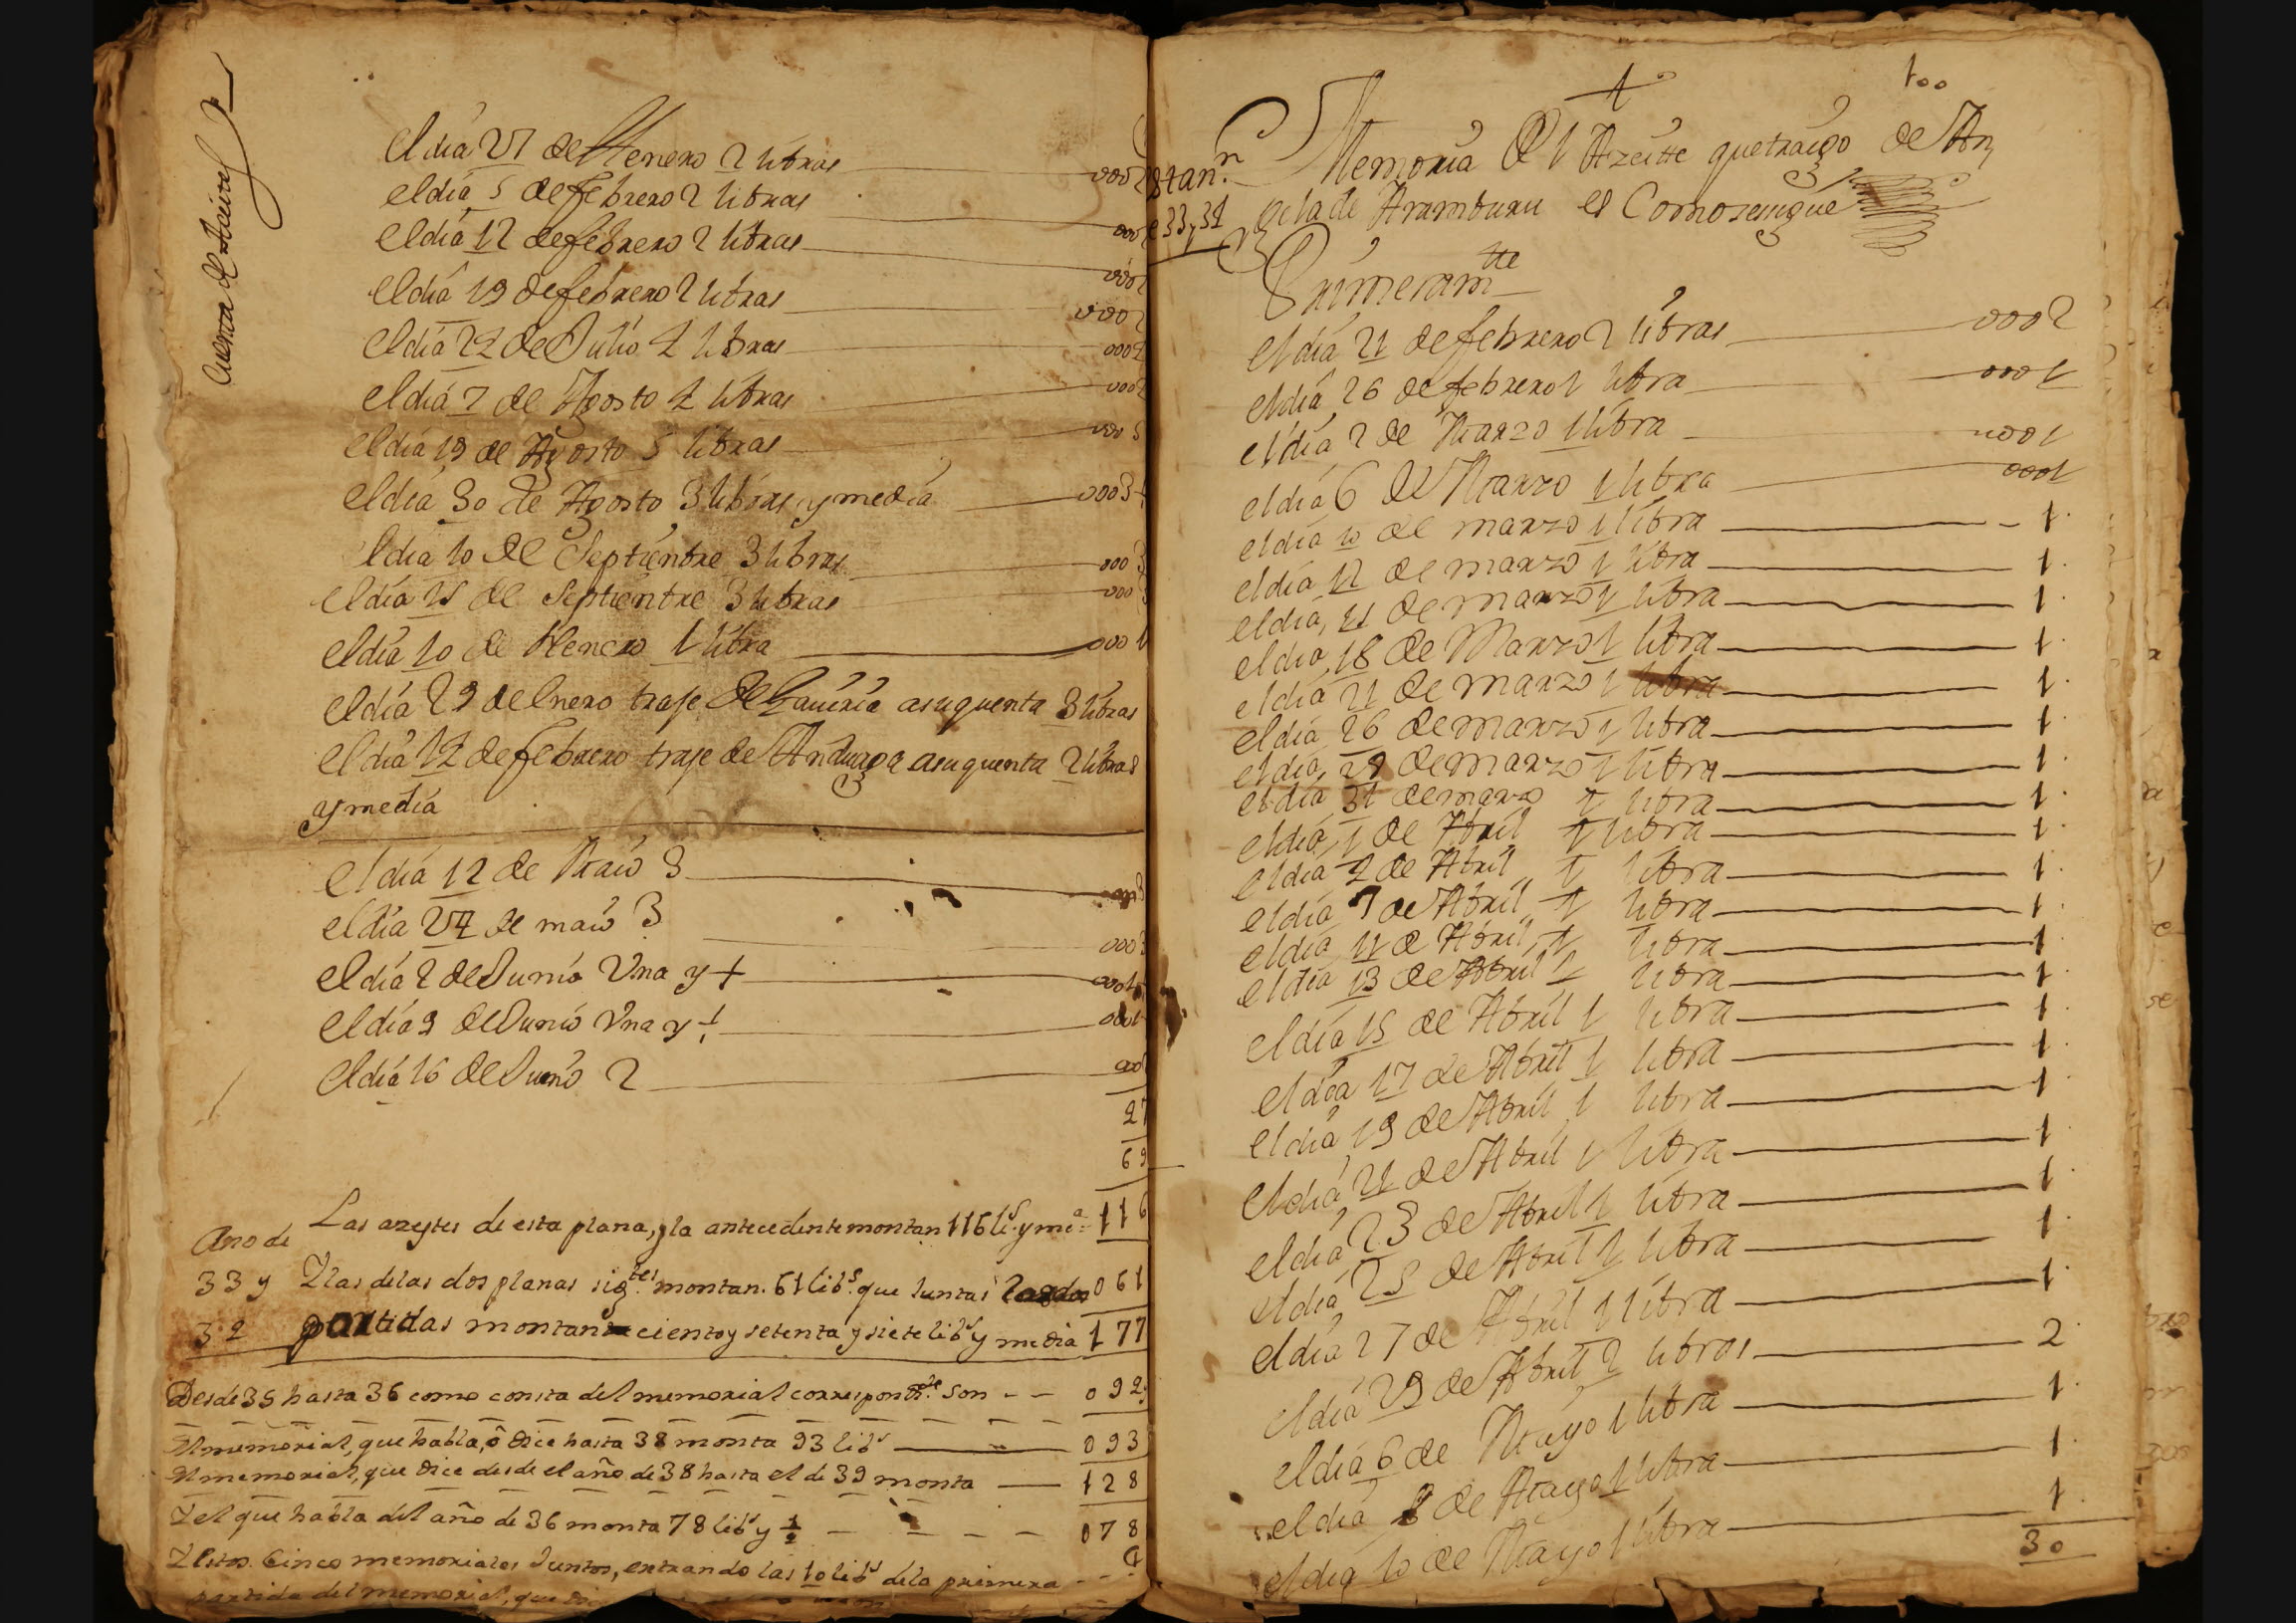 Cuenta de Azeite
el dia 27 de Henero 2 libras 0002
el dia 5 de febrero 2 libras 000
el dia 12 de febrero 2 libras 0002
el dia 19 de febrero 2 libras 0002
el dia 22 de Julio 2 libras 0002
el dia 7 de Agosto 2 libras 0002
el dia 19 de Agosto 5 libras 0005
el dia 30 de Agosto 3 libras y media 0003
el dia 10 de Septienbre 3 libras 0003
el dia 15 de Septienbre 3 libras 000
el dia 10 de Henero 1 libra 0001
el dia 29 de Enero traje de asuquenta 3 libras
el dia 12 de febrero traje de Anduaga asuquenta 2 libras
y media
el dia 12 de Maio 3
el dia 24 de maio 3 000
el dia 2 de Junio Una y + 0001
el dia 9 de Junio Una y + 0001
el dia 16 de Junio 2 000
27
69
Las azeytes de esta plana, y la antecedente montan 116 lis. y mª 116
Ano de
33 y Y las delas dos planas sigtes. montan. 61 libs. que Juntas las dos 061
32 partidas montan ciento y setenta y siete libs y media 177
Desde 35 hasta 36 como consta del memorial correspondte. son 092
El memorial, que habla, o dice hasta 38 monta 93 libs 093
El memorial, que dice desde el año de 38 hasta el de 39 monta 128
Y el que habla del año de 36 monta 78 libs y ½ 078
Y Estos Cinco memoriales Juntos, entrando las 10 libs dela primera
partida del memorial, que
100
Memoria del Azeitte que traigo de An
stan.n
e 33, 31 gela de Aramburu es Como se sigue
Primeramtte
el dia 21 de febrero 2 libras 0002
el dia 26 de febrero 1 libra 0001
el dia 2 de Marzo 1 libra 0001
el dia 6 de Marzo 1 libra 0001
el dia 10 de marzo 1 libra 1
el dia 12 de marzo 1 libra 1
el dia, 11 de marzo 1 libra 1
el dia, 18 de Marzo 1 libra 1
el dia 21 de marzo 1 libra 1
el dia 26 de marzo 1 libra 1
el dia, 29 de marzo 1 libra 1
el dia, 31 de marzo 1 libra 1
el dia, 1 de Abril 1 libra 1
el dia 2 de Abril 1 libra 1
el dia 7 de Abril 1 libra 1
el dia 11 de Abril, 1 libra 1
el dia 13 de Abril 1 libra 1
el dia 15 de Abril 1 libra 1
el dia 17 de Abril 1 libra 1
el dia 19 de Abril 1 libra 1
el dia 21 de Abril 1 libra 1
el dia 23 de Abril 1 libra 1
el dia 25 de Abril 1 libra 1
el dia 27 de Abril 1 libra 1
el dia 29 de Abril 2 libras 2
el dia 6 de Mayo 1 libra 1
el dia 8 de Mayo 1 libra 1
el dia 10 de Mayo 1 libra 1
30